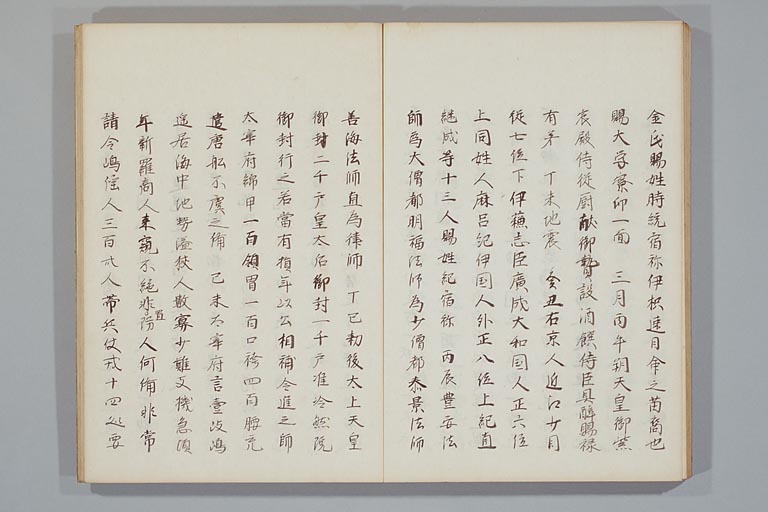 金氏賜姓時統宿祢伊枳速日命之苗裔也
賜大学寮印一面 三月丙午朔天皇御紫
宸殿侍従厨献御贄設酒饌侍臣具酔賜禄
有差 丁未地震 癸丑右京人近江少目
従七位下伊蘓志臣廣成大和国人正六位
上同姓人麻呂紀伊国人外正八位上紀直
継成等十三人賜姓紀宿祢 丙辰豊安法
師為大僧都明福法師為少僧都泰景法師
善海法師直為律師 丁巳勅後太上天皇
御封二千戸皇太后御封一千戸准冷然院
御封行之若當有損年以公相補令進之師
太宰府綿甲一百領冑一百口袴四百腰充
遣唐舩不虞之俻 己未太宰府言壹岐嶋
遥居海中地勢溢狭人数寡少難支機急頃
年新羅商人来窺不絶非置防人何俻非常
請令嶋徭人三百卅人帯兵仗戍十四処要